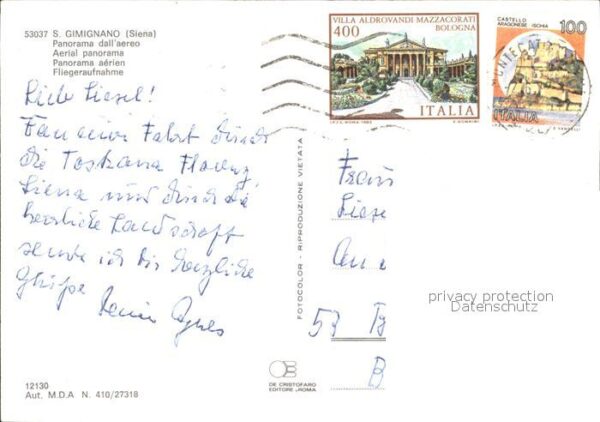 53037 S. GIMIGNANO (Siena)
Panorama dall'aereo
Aerial panorama
Panorama aérien
Fliegeraufnahme
Liebe Liesel!
Fahrt durch
die Toskana Florenz,
Siena und durch die
herrliche Landschaft
sende ich dir herzliche
Grüße
Agnes
VILLA ALDROVANDI MAZZACORATI
400 BOLOGNA
ITALIA
CASTELLO
ARAGONESE - ISCHIA 100
ITALIA
FOTOCOLOR - RIPRODUZIONE VIETATA
Frau
Liese
53 B
B
privacy protection
Datenschutz
DE CRISTOFARO
EDITORE - ROMA
12130
Aut. M.D.A N. 410/27318